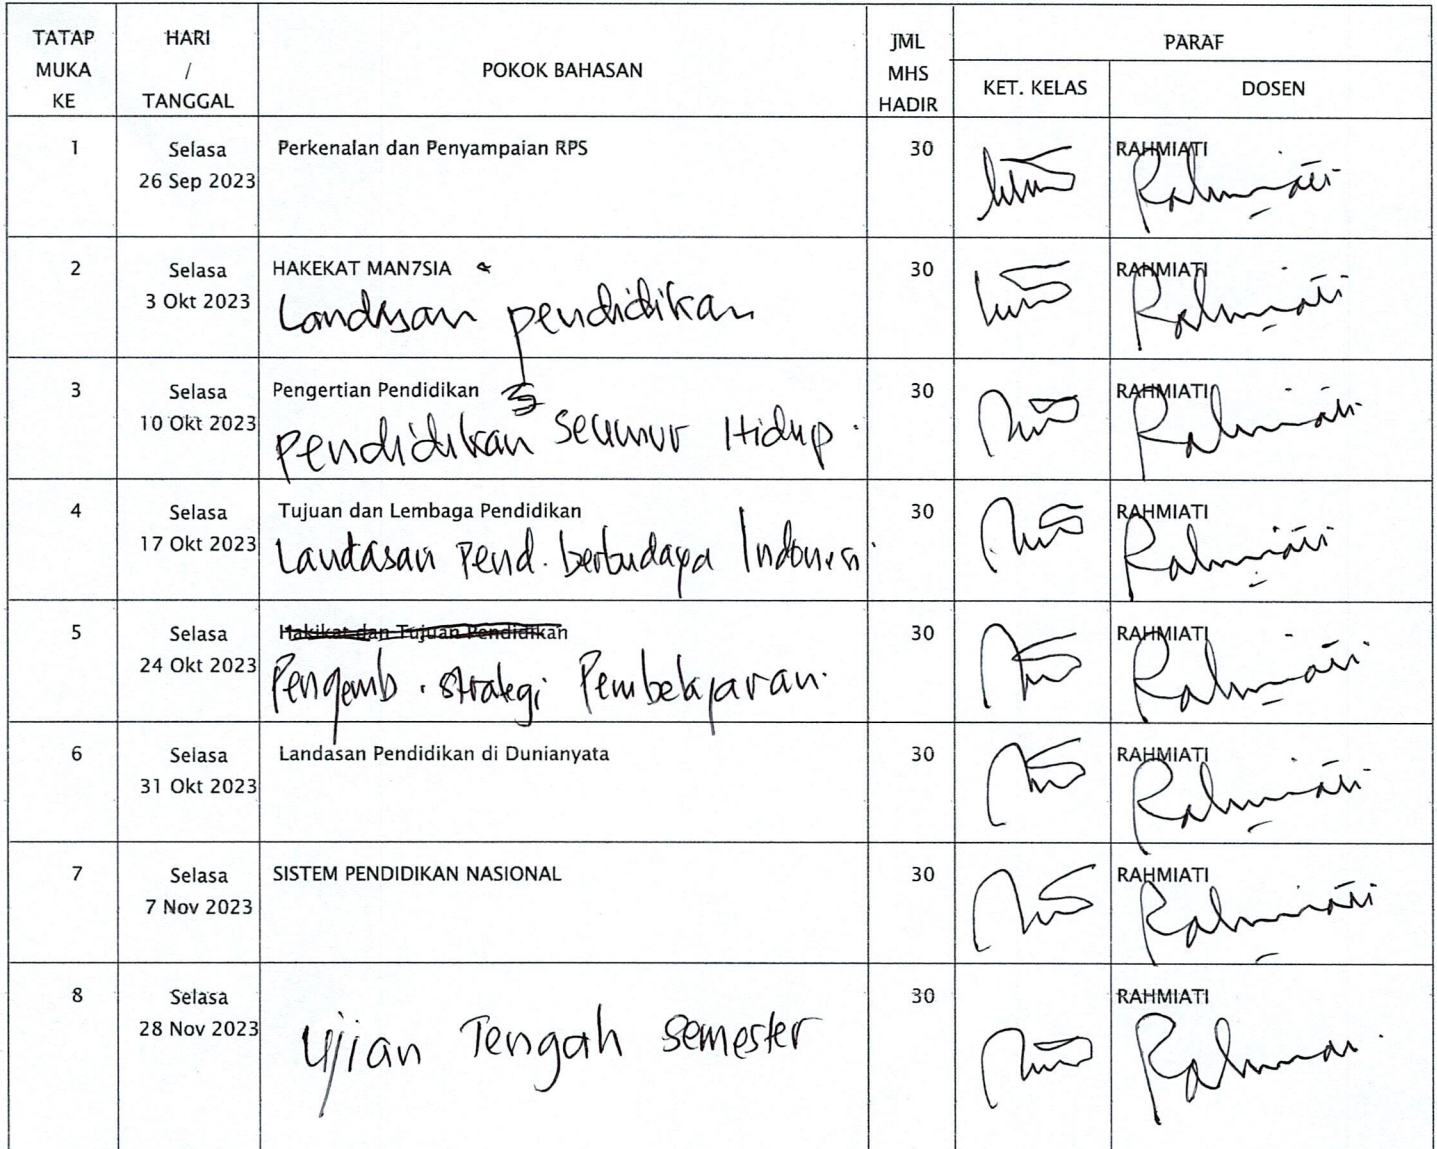 TATAP MUKA KE
HARI / TANGGAL
POKOK BAHASAN
JML MHS HADIR
PARAF
KET. KELAS
DOSEN
1
Selasa
26 Sep 2023
Perkenalan dan Penyampaian RPS
30
RAHMIATI
Rahmiati
2
Selasa
3 Okt 2023
HAKEKAT MAN7SIA &
Landasan pendidikan
30
RAHMIATI
Rahmiati
3
Selasa
10 Okt 2023
Pengertian Pendidikan
pendidikan seumur Hidup.
30
RAHMIATI
Rahmiati
4
Selasa
17 Okt 2023
Tujuan dan Lembaga Pendidikan
Landasan Pend. berbudaya Indonesi
30
RAHMIATI
Rahmiati
5
Selasa
24 Okt 2023
Hakikat dan Tujuan Pendidikan
Pengemb. strategi Pembelajaran.
30
RAHMIATI
Rahmiati
6
Selasa
31 Okt 2023
Landasan Pendidikan di Dunianyata
30
RAHMIATI
Rahmiati
7
Selasa
7 Nov 2023
SISTEM PENDIDIKAN NASIONAL
30
RAHMIATI
Rahmiati
8
Selasa
28 Nov 2023
Ujian Tengah Semester
30
RAHMIATI